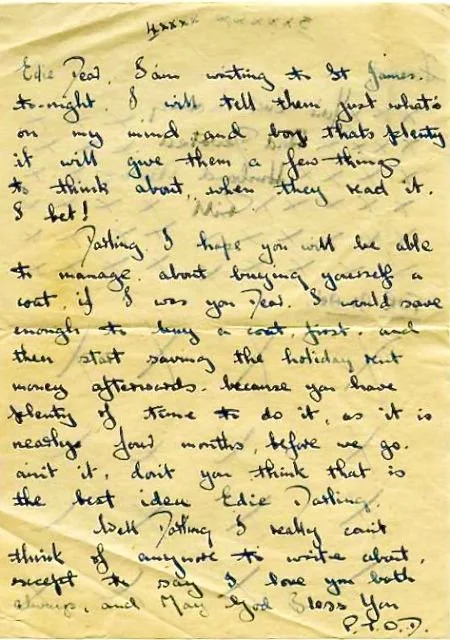 4xxxx
Edie Dear. I am writing to St James.
to-night. I will tell them just what's
on my mind and boy thats plenty
it will give them a few things
to think about, when they read it.
I bet!
Darling. I hope you will be able
to manage. about buying yourself a
coat, if I was you Dear. I would save
enough to buy a coat, first. and
then start saving the holiday rent
money afterwards. because you have
plenty of time to do it, as it is
nearlys four months, before we go.
ain't it, don't you think that is
the best idea Edie Darling.
Well Darling I really can't
think of anymore to write about,
except to say I love you both
always, and May God Bless You
P.T.O.D.